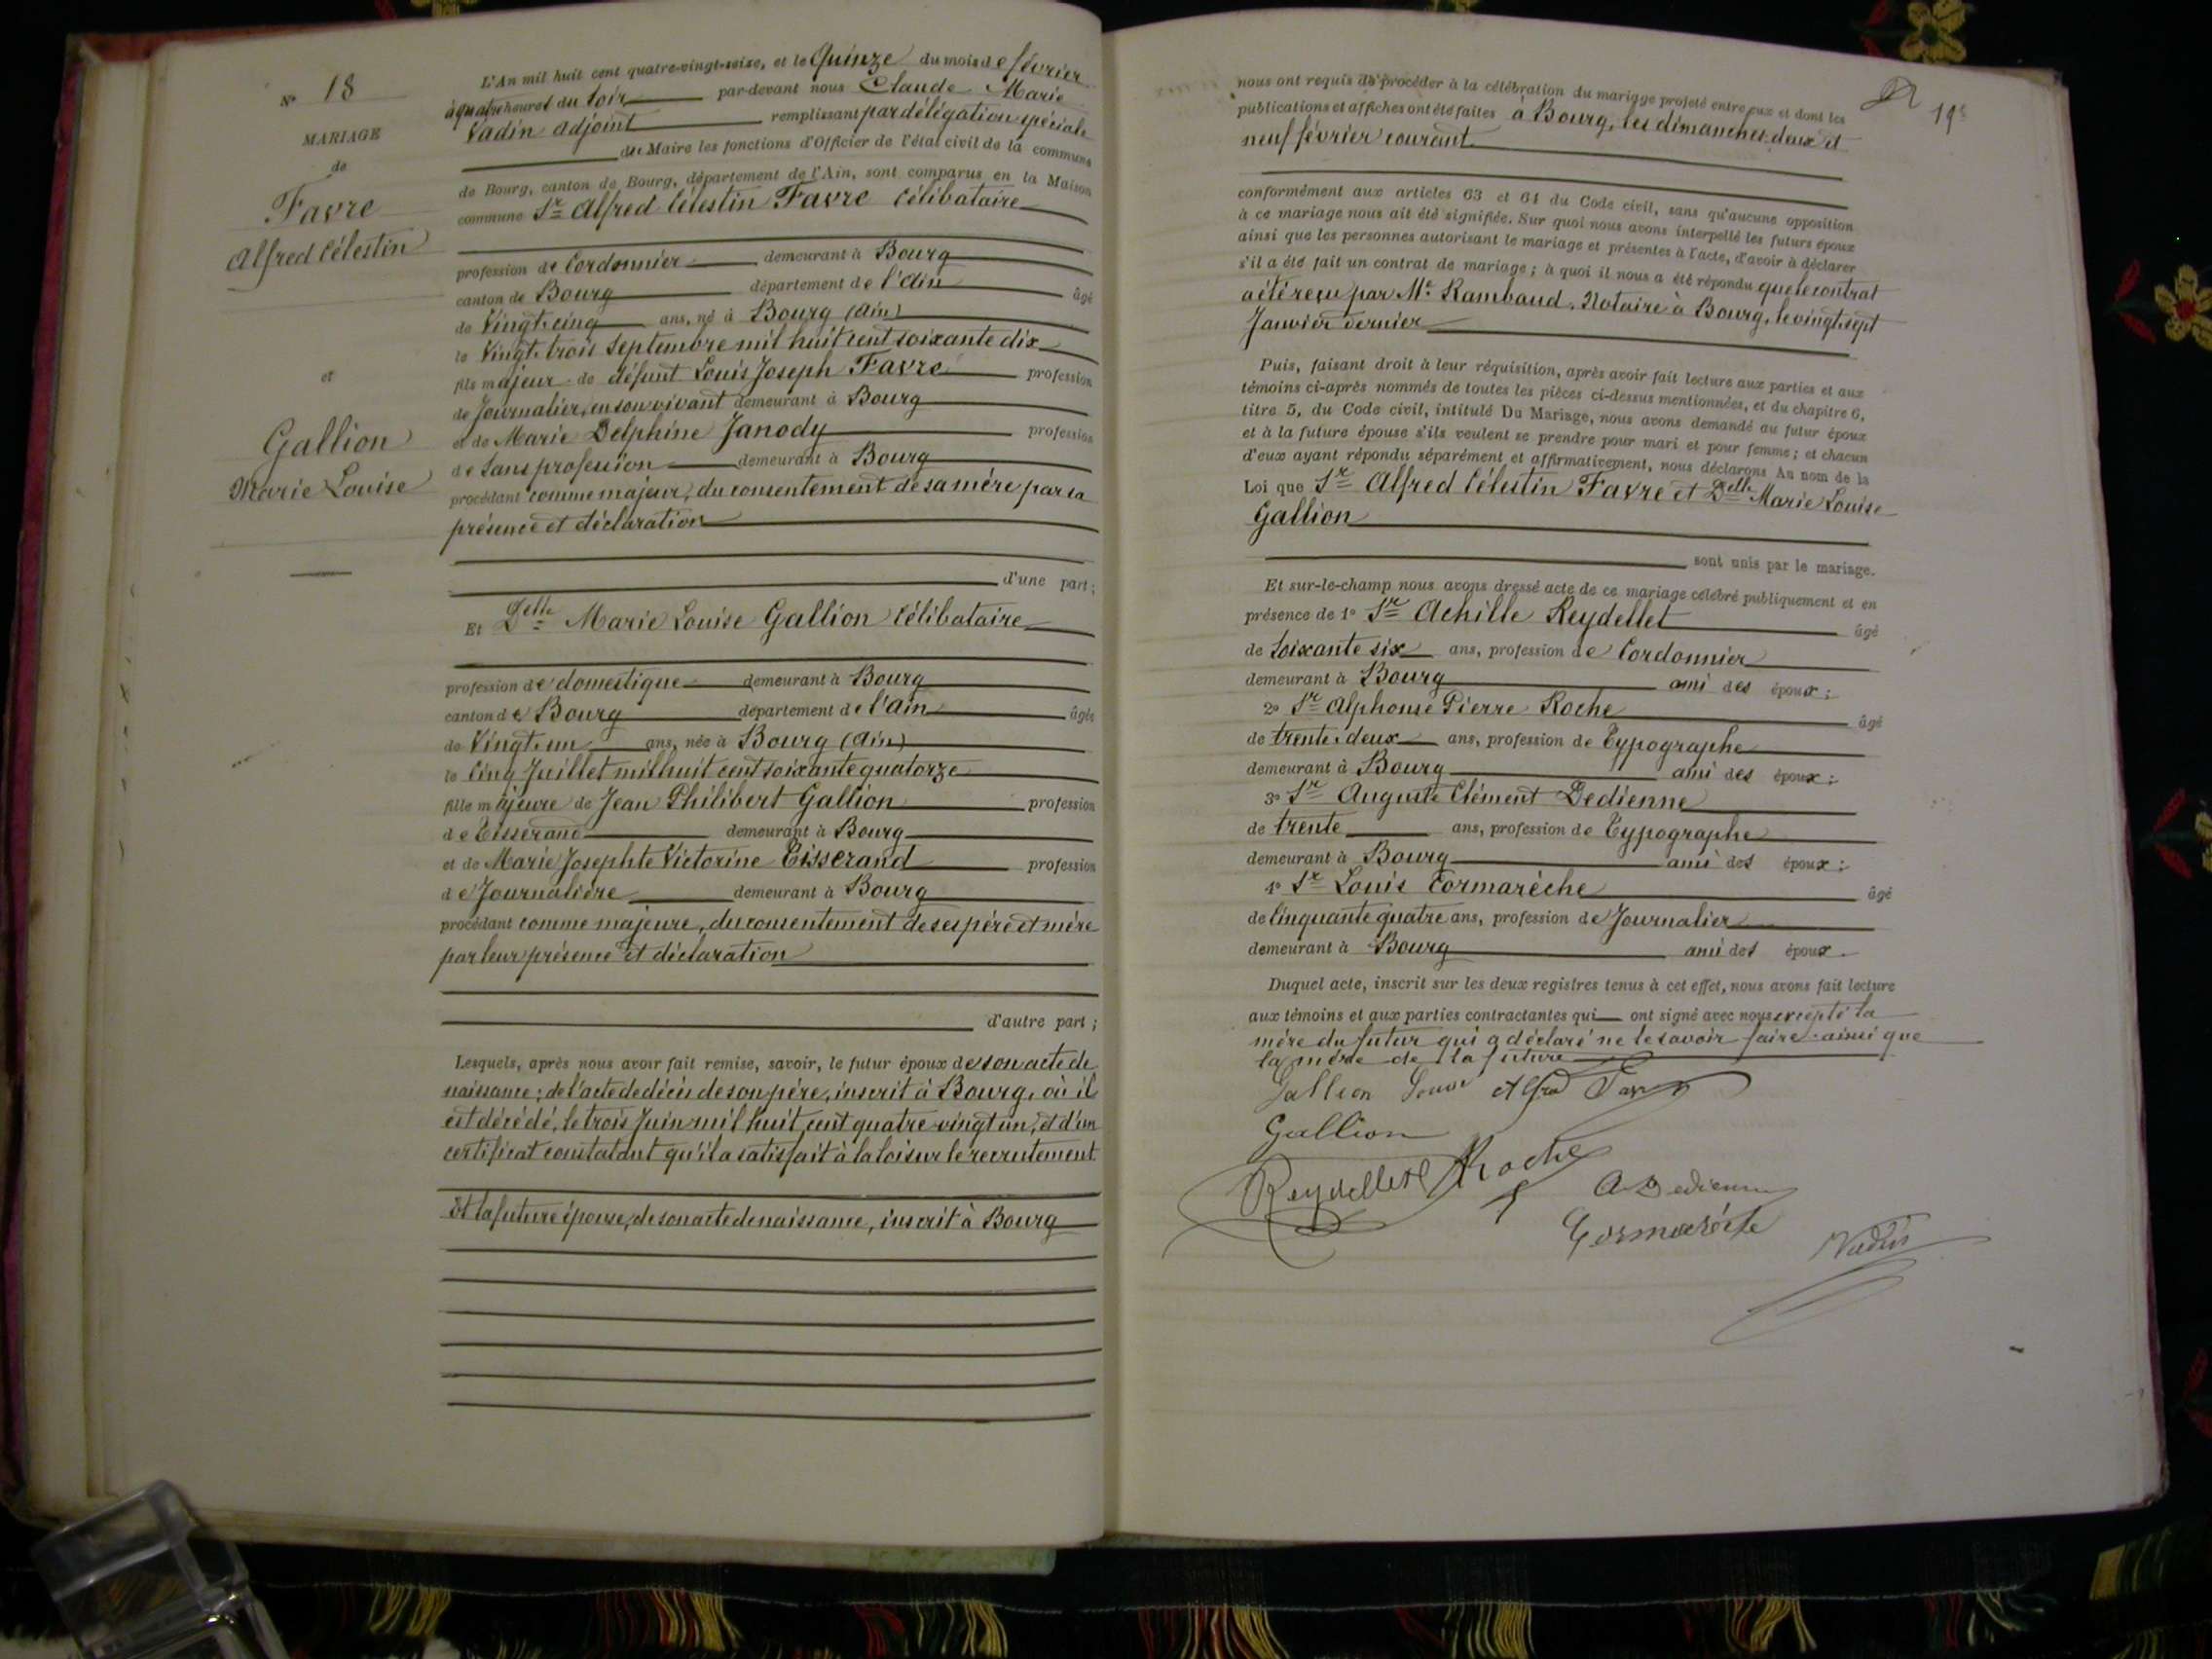 N° 18
MARIAGE
de
Favre
Alfred Célestin
et
Gallion
Marie Louise
L'An mil huit cent quatre-vingt-seize, et le Quinze du mois de février
à quatre heures du soir par-devant nous Claude Marie
Vadin adjoint remplissant par délégation spéciale
du Maire les fonctions d'Officier de l'état civil de la commune
de Bourg, canton de Bourg, département de l'Ain, sont comparus en la Maison
commune Sr Alfred Célestin Favre Célibataire
profession de Cordonnier demeurant à Bourg
canton de Bourg département de l'Ain âgé
de Vingt-cinq ans, né à Bourg (Ain)
le Vingt-trois Septembre mil huit cent soixante dix
fils majeur de défunt Louis Joseph Favre profession
de Journalier, en son vivant demeurant à Bourg
et de Marie Delphine Janody profession
de Sans profession demeurant à Bourg
procédant comme majeur, du consentement de sa mère par sa
présence et déclaration
d'une part;
Et Delle Marie Louise Gallion Célibataire
profession de domestique demeurant à Bourg
canton de Bourg département de l'Ain âgée
de Vingt-un ans, née à Bourg (Ain)
le Cinq Juillet mil huit cent soixante quatorze
fille majeure de Jean Philibert Gallion profession
de Tisserand demeurant à Bourg
et de Marie Josephte Victorine Tisserand profession
de Journalière demeurant à Bourg
procédant comme majeure, du consentement de ses père et mère
par leur présence et déclaration
d'autre part;
Lesquels, après nous avoir fait remise, savoir, le futur époux de son acte de
naissance; de l'acte de décès de son père, inscrit à Bourg, où il
est décédé, le trois Juin mil huit cent quatre-vingt un, et d'un
certificat constatant qu'il a satisfait à la loi sur le recrutement
Et la future épouse, de son acte de naissance, inscrit à Bourg
19e
nous ont requis de procéder à la célébration du mariage projeté entre eux et dont les
publications et affiches ont été faites à Bourg, les dimanches deux et
neuf février courant
conformément aux articles 63 et 64 du Code civil, sans qu'aucune opposition
à ce mariage nous ait été signifiée. Sur quoi nous avons interpellé les futurs époux
ainsi que les personnes autorisant le mariage et présentes à l'acte, d'avoir à déclarer
s'il a été fait un contrat de mariage; à quoi il nous a été répondu que le contrat
a été reçu par Me Rambaud, Notaire à Bourg, le vingt-sept
Janvier dernier
Puis, faisant droit à leur réquisition, après avoir fait lecture aux parties et aux
témoins ci-après nommés de toutes les pièces ci-dessus mentionnées, et du chapitre 6,
titre 5, du Code civil, intitulé Du Mariage, nous avons demandé au futur époux
et à la future épouse s'ils veulent se prendre pour mari et pour femme; et chacun
d'eux ayant répondu séparément et affirmativement, nous déclarons Au nom de la
Loi que Sr Alfred Célestin Favre et Delle Marie Louise
Gallion
sont unis par le mariage.
Et sur-le-champ nous avons dressé acte de ce mariage célébré publiquement et en
présence de 1° Sr Achille Reydellet âgé
de Soixante six ans, profession de Cordonnier
demeurant à Bourg ami des époux;
2° Sr Alphonse Pierre Roche âgé
de trente-deux ans, profession de Typographe
demeurant à Bourg ami des époux;
3° Sr Auguste Clément Dedienne
de trente ans, profession de Typographe
demeurant à Bourg ami des époux;
4° Sr Louis Cormarèche âgé
de Cinquante quatre ans, profession de Journalier
demeurant à Bourg ami des époux.
Duquel acte, inscrit sur les deux registres tenus à cet effet, nous avons fait lecture
aux témoins et aux parties contractantes qui ont signé avec nous excepté la
mère du futur qui a déclaré ne le savoir faire ainsi que
la mère de la future
Gallion Louise Alfred Favre
Gallion
Reydellet Roche
A Dedienne
Cormarèche
Vadin